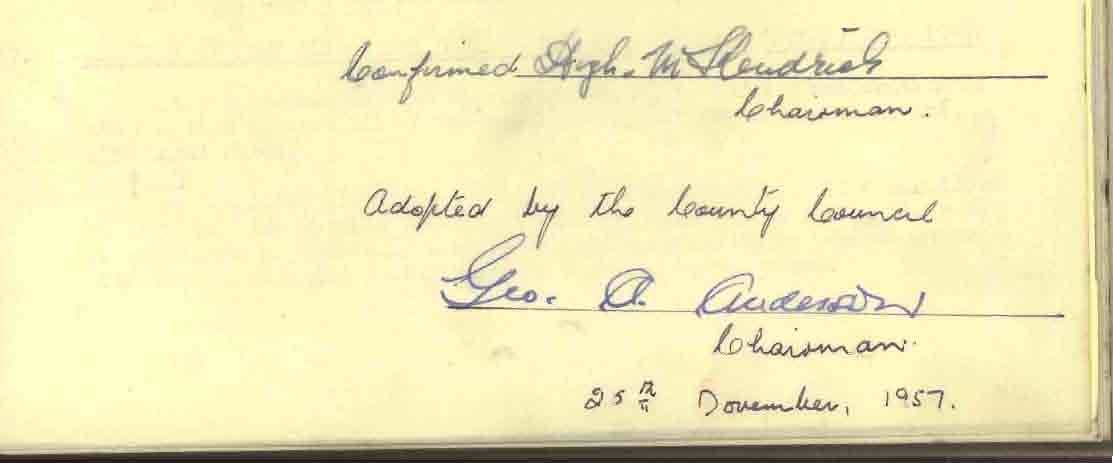 Confirmed Hugh. McKendrick
Chairman.
Adopted by the County Council
Geo. A. Anderson
Chairman.
25th November, 1957.